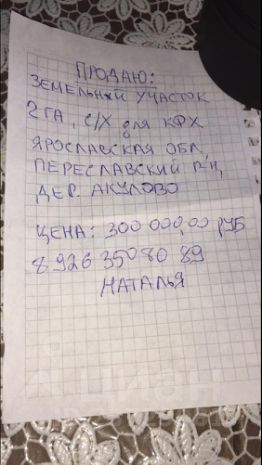 ПРОДАЮ:
ЗЕМЕЛЬНЫЙ УЧАСТОК
2 ГА, С/Х для КФХ
ЯРОСЛАВСКАЯ ОБЛ,
ПЕРЕСЛАВСКИЙ Р-Н,
ДЕР. АКУЛОВО
ЦЕНА: 300 000,00 РУБ
8 926 350 80 89
НАТАЛЬЯ
ЦИАН